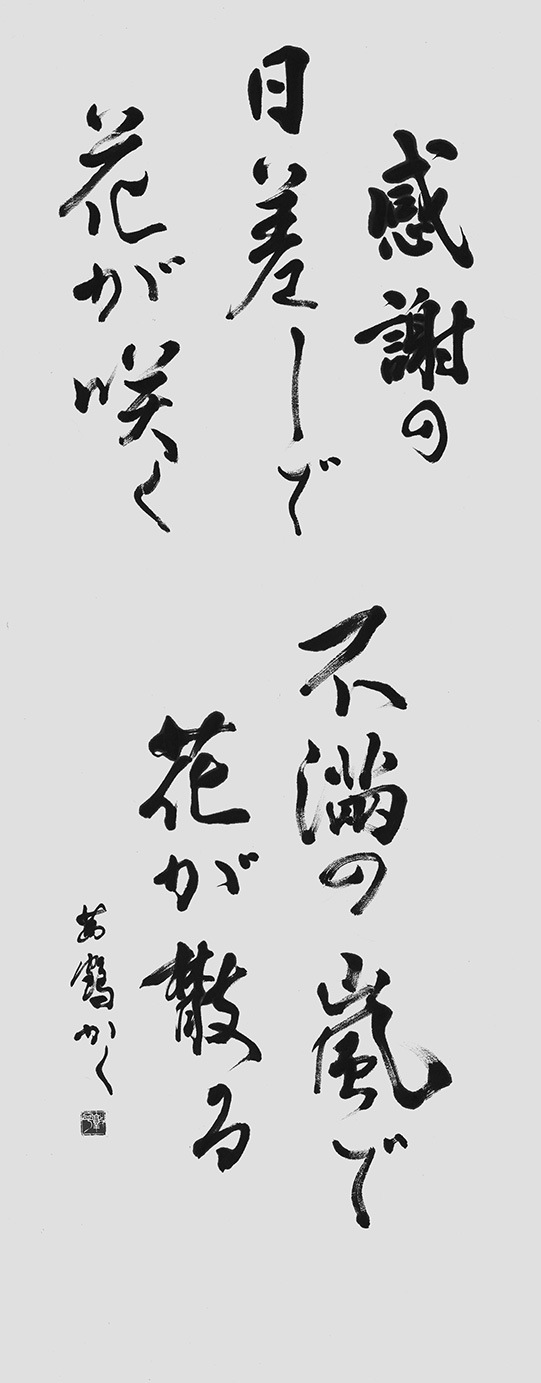 感謝の
日差しで
花が咲く
不満の
嵐で
花が散る
鶴かく